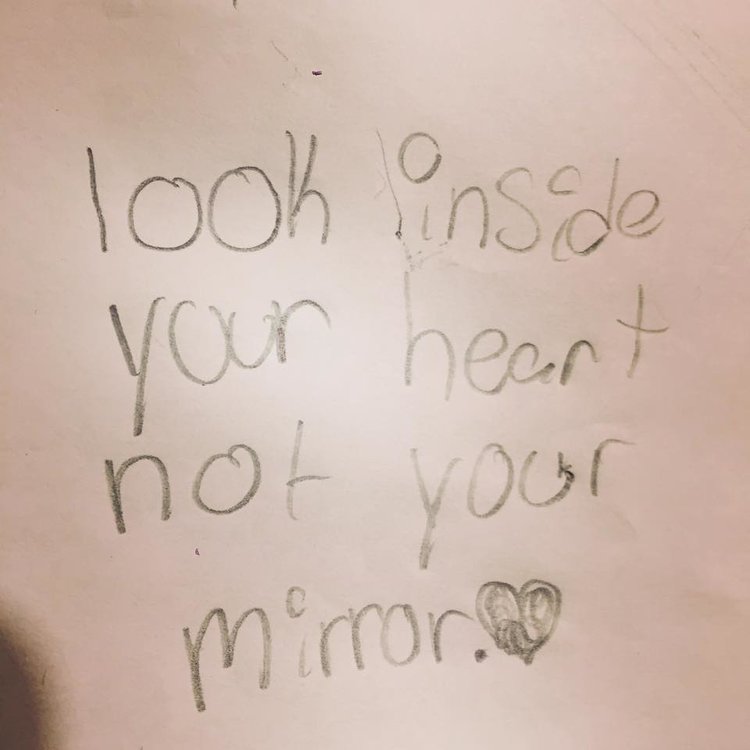 look inside
your heart
not your
mirror.